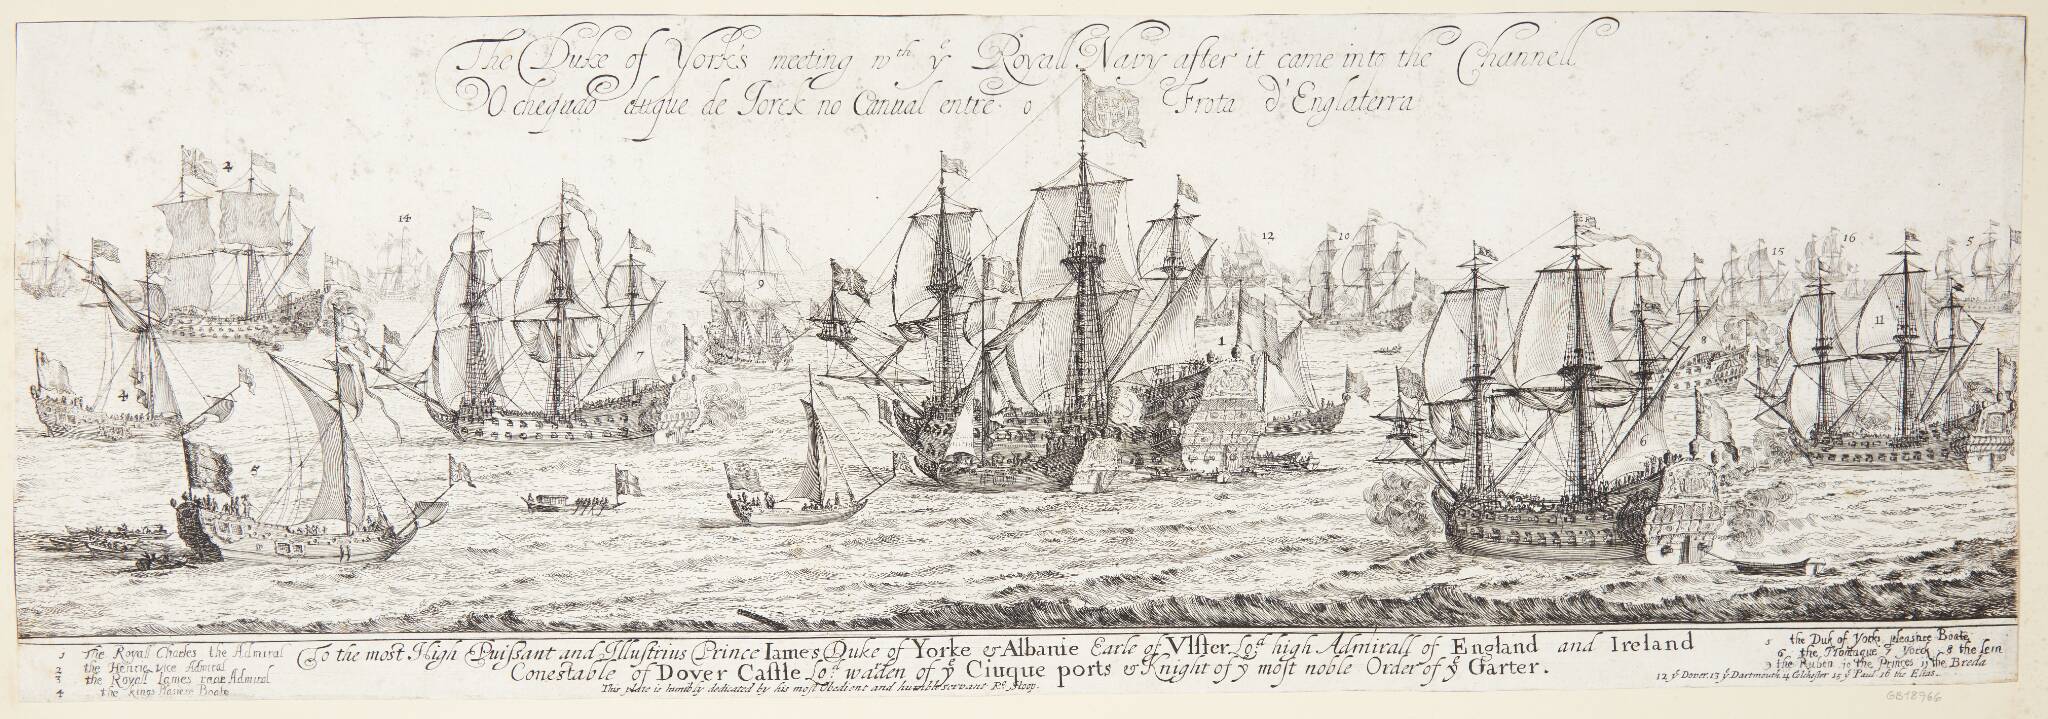 The Duke of York's meeting wth ye Royall Navy after it came into the Channell
O chegado duque de Jorck no Canual entre o Frota d'Englaterra
2
14
9
12
10
15
16
5
7
1
8
11
4
6
5
1 The Royall Charles the Admiral
2 the Henrie vice Admiral
3 the Royall James rear Admiral
4 the kings Plasiere Boate
To the most High Puissant and Illustrius Prince Iames Duke of Yorke & Albanie Earle of Vlster Lod high Admirall of England and Ireland
Conestable of Dover Castle Lod warden of ye Ciuque ports & Knight of ye most noble Order of ye Garter.
This plate is humbly dedicated by his most Obedient and humble servant Ro Hoop.
5 the Duk of Yorks pleasure Boate
6 the Montague 7 Yorck 8 the
9 the Ruben 10 the Princes 11 the Breda
12 ye Dover 13 ye Dartmouth 14 Colchester 15 ye Paul 16 the Elias.
GB18966